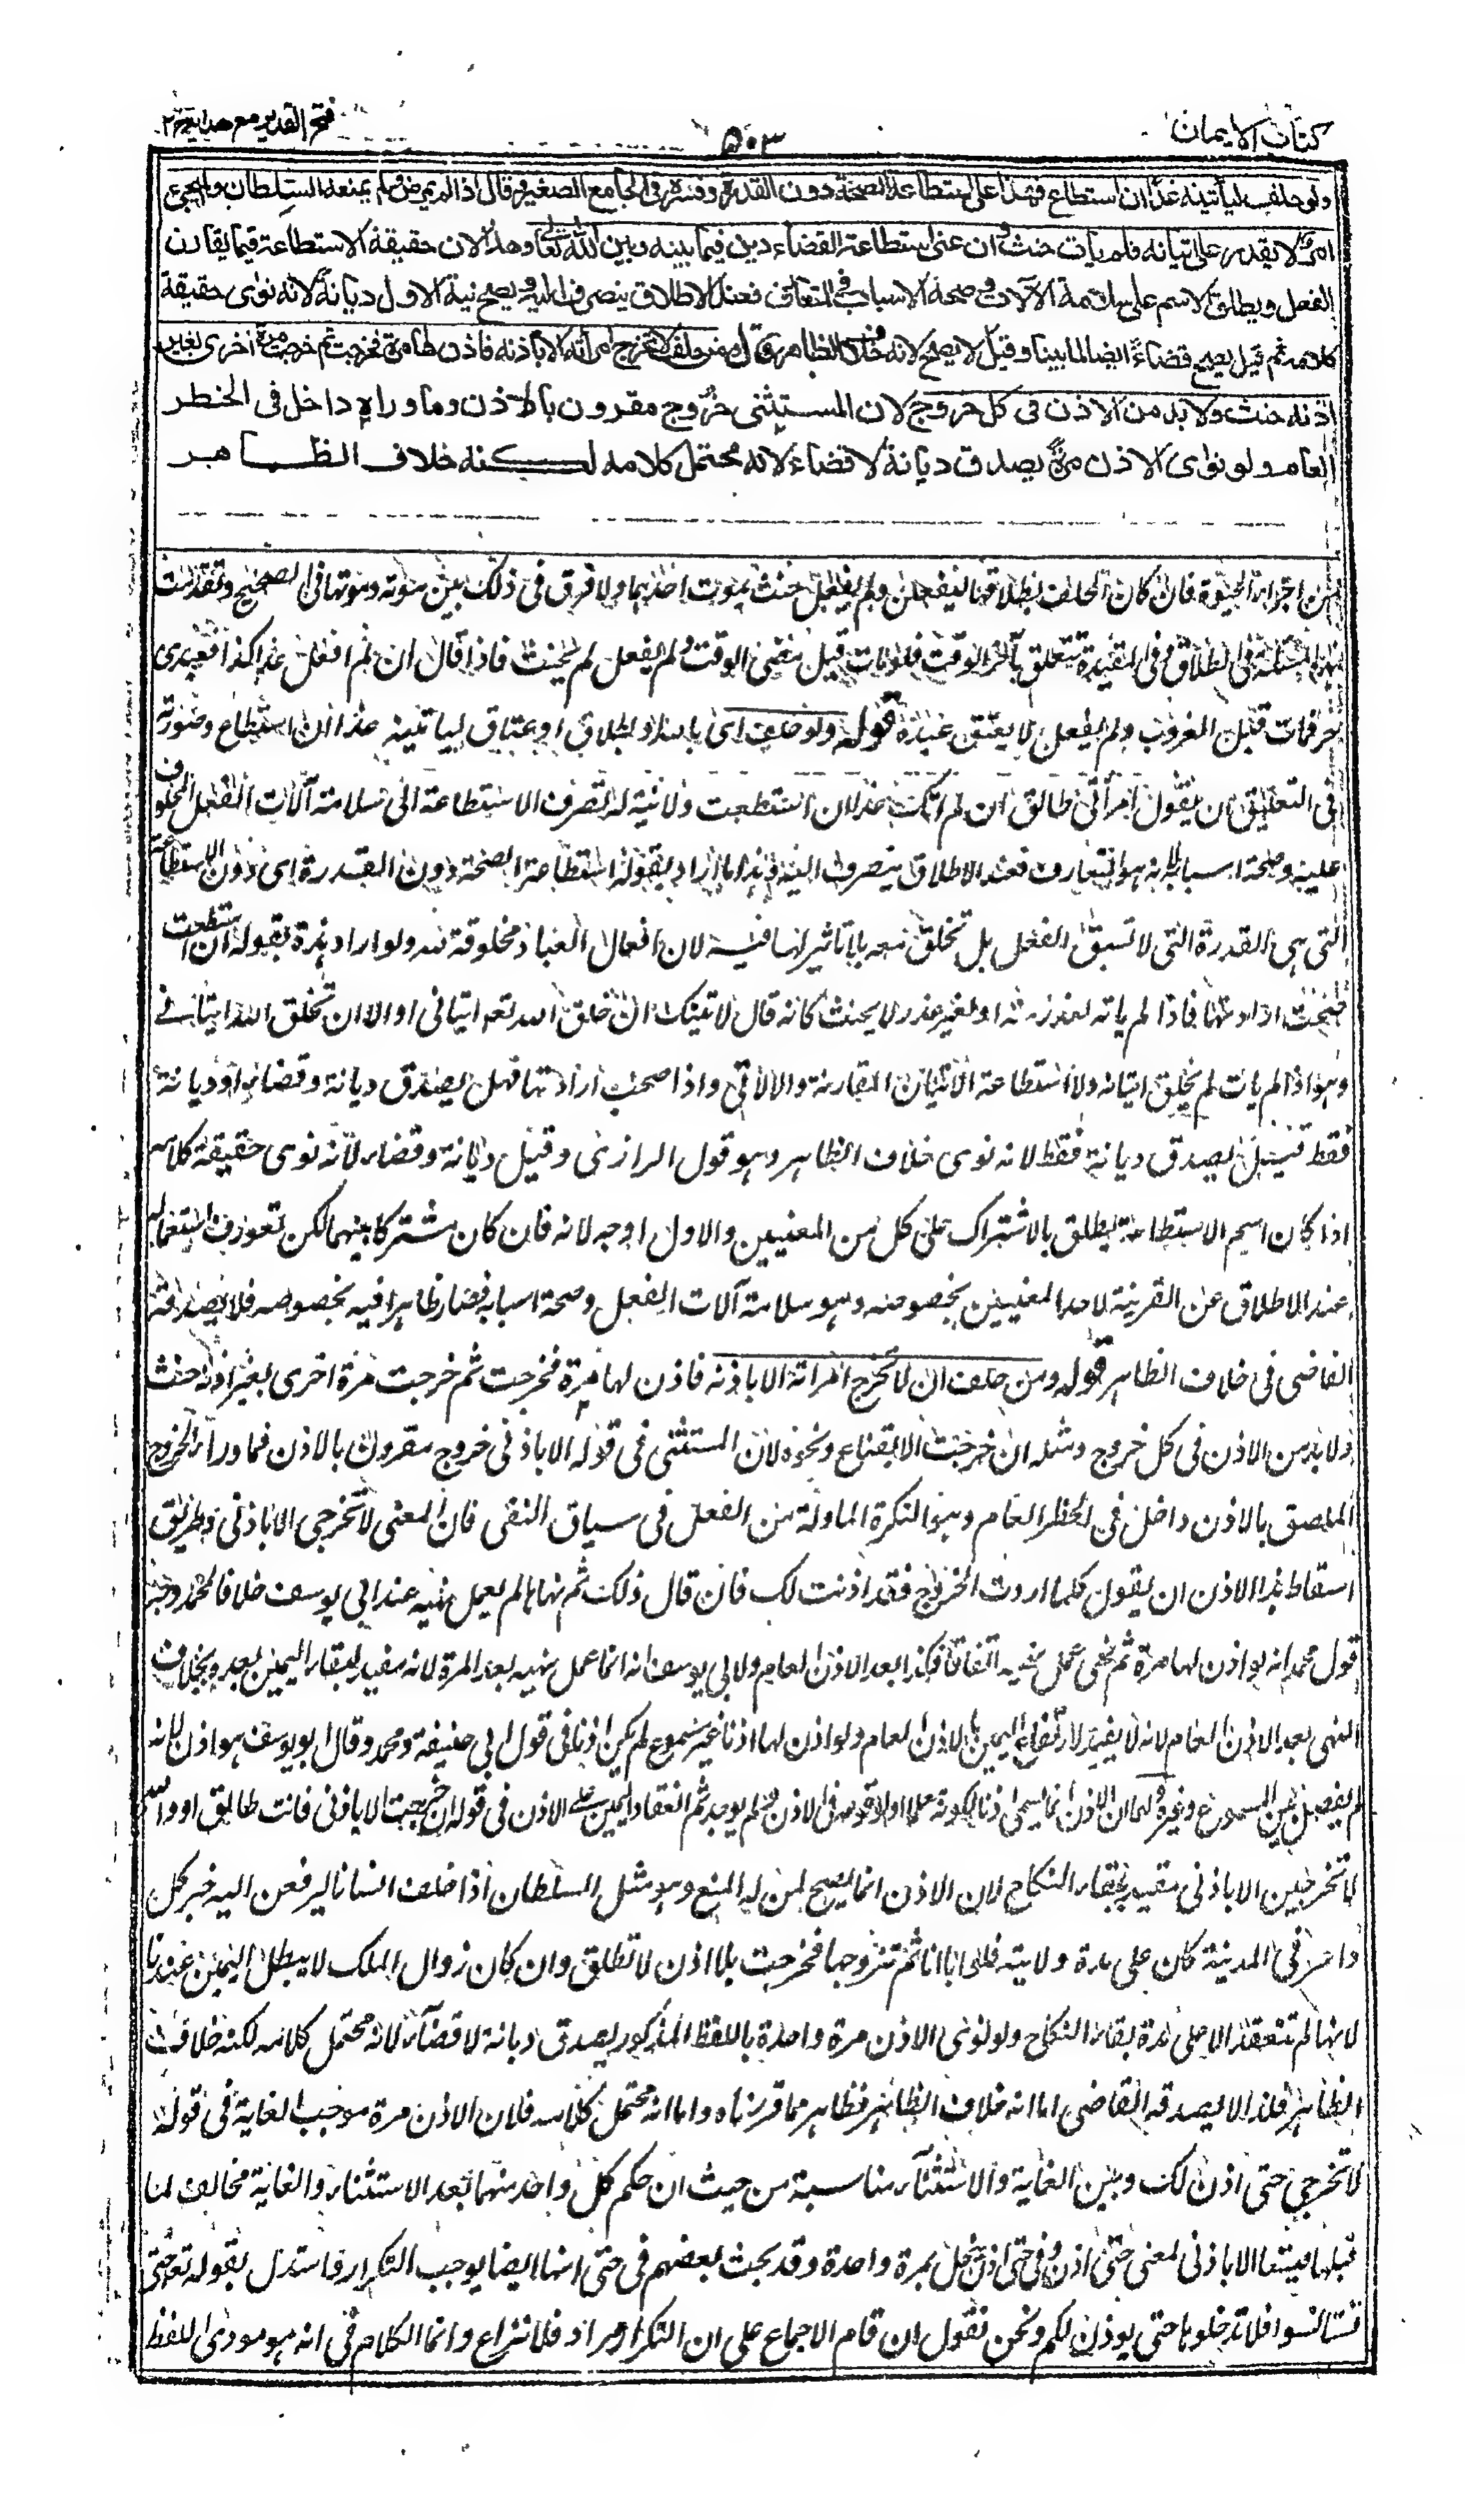 كتاب الايمان
٥٠٣
فتح القدير مع هدايه ج٢
ولو حلف ليأتينه غدا ان استطاع فهذا على استطاعة الصحة دون القدرة وفسره فى الجامع الصغير فقال اذا لم يمرض ولم يمنعه السلطان ولم يجئ
امر لا يقدر على اتيانه فلم يأت حنث وان عنى استطاعة القضاء دين فيما بينه وبين الله تعالى وهذا لان حقيقة الاستطاعة فيما يقارن
الفعل ويطلق الاسم على سلامة الآلات وصحة الاسباب فى المتعارف فعند الاطلاق ينصرف اليه ويصح نية الاول ديانة لانه نوى حقيقة
كلامه ثم قيل يصح قضاء ايضا لما بينا وقيل لا يصح لانه خلاف الظاهر قال ومن حلف لا تخرج امرأته الا باذنه فاذن لها مرة فخرجت ثم خرجت مرة اخرى بغير
اذنه حنث ولا بد من الاذن فى كل خروج لان المستثنى خروج مقرون بالاذن وما وراءه داخل فى الحظر
العام ولو نوى الاذن مرة يصدق ديانة لا قضاء لانه محتمل كلامه لكنه خلاف الظاهر
من اجزاء الحيوة فان كان الحلف بطلاقها ليفعلن ولم يفعل حنث بموت احدهما ولا فرق فى ذلك بين موته وموتها فى الصحيح وتقدمت
هذه المسئلة فى الطلاق وفى المقيدة تتعلق بآخر الوقت فلو مات قبل مضى الوقت ولم يفعل لم يحنث فاذا قال ان لم افعل غدا كذا فعبدى
حر فمات قبل الغروب ولم يفعل لا يعتق عبده قوله ولو حلف اى بالله او بطلاق او عتاق ليأتينه غدا ان استطاع وصورته
فى التعليق ان يقول امرأتى طالق ان لم آتك غدا ان استطعت ولا نية له تصرف الاستطاعة الى سلامة آلات الفعل المحلوف
عليه وصحة اسبابه لانه هو المتعارف فعند الاطلاق ينصرف اليه وهذا ما اراد بقوله استطاعة الصحة دون القدرة اى دون الاستطاعة
التى هى القدرة التى لا تسبق الفعل بل تخلق معه بلا تأثير لها فيه لان افعال العباد مخلوقة لله ولو اراد هذه بقوله ان استطعت
صحت ارادتها فاذا لم يأته لعذر منه او لغير عذر لا يحنث كانه قال لآتينك ان خلق الله تعالى اتيانى او الا ان تخلق الله اتيانى
وهو اذا لم يأت لم يخلق اتيانه ولا استطاعة الاتيان المقارنة والا لاتى واذا صحت ارادتها فهل يصدق ديانة وقضاء او ديانة
فقط قيل يصدق ديانة فقط لانه نوى خلاف الظاهر وهو قول الرازى وقيل ديانة وقضاء لانه نوى حقيقة كلامه
اذا كان اسم الاستطاعة يطلق بالاشتراك على كل من المعنيين والاول اوجه لانه فان كان مشتركا بينهما لكن تعورف استعماله
عند الاطلاق عن القرينة لاحد المعنيين بخصوصه وهو سلامة آلات الفعل وصحة اسبابه فصار ظاهرا فيه بخصوصه فلا يصدقه
القاضى فى خلاف الظاهر قوله ومن حلف ان لا تخرج امرأته الا باذنه فاذن لها مرة فخرجت ثم خرجت مرة اخرى بغير اذنه حنث
ولا بد من الاذن فى كل خروج ومثله ان خرجت الا بقناع ونحوه لان المستثنى فى قوله الا باذنى خروج مقرون بالاذن فما وراء الخروج
الملصق بالاذن داخل فى الحظر العام وهو النكرة الماولة من الفعل فى سياق النفى فان المعنى لا تخرجى الا باذنى وطريق
اسقاط هذا الاذن ان يقول كلما اردت الخروج فقد اذنت لك فان قال ذلك ثم نهاها لم يعمل نهيه عند ابى يوسف خلافا لمحمد وجه
قول محمد انه لو اذن لها مرة ثم نهى عمل نهيه اتفاقا فكذا بعد الاذن العام ولابى يوسف انه انما عمل نهيه بعد المرة لانه مفيد لبقاء اليمين بعده بخلاف
النهى بعد الاذن العام لانه لا يفيد لارتفاع اليمين بالاذن العام ولو اذن لها اذنا غير مسموع لم يكن اذنا فى قول ابى حنيفة ومحمد وقال ابو يوسف هو اذن لانه
لم يفصل بين المسموع وغيره ولهما ان الاذن انما يسمى اذنا لكونه علما او لوقوعه فى الاذن ولم يوجد ثم انعقاد اليمين على الاذن فى قوله ان خرجت الا باذنى فانت طالق او والله
لا تخرجين الا باذنى مقيد ببقاء النكاح لان الاذن انما يصح لمن له المنع وهو مثل السلطان اذا حلف انسانا ليرفعن اليه خبر كل
داعر فى المدينة كان على مدة ولايته فلو ابانها ثم تزوجها فخرجت بلا اذن لا تطلق وان كان زوال الملك لا يبطل اليمين عندنا
لانها لم تنعقد الا على مدة بقاء النكاح ولو نوى الاذن مرة واحدة باللفظ المذكور يصدق ديانة لا قضاء لانه محتمل كلامه لكنه خلاف
الظاهر فلذا لا يصدقه القاضى اما انه خلاف الظاهر فظاهر مما قررناه واما انه محتمل كلامه فلان الاذن مرة موجب الغاية فى قوله
لا تخرجى حتى اذن لك وبين الغاية والاستثناء مناسبة من حيث ان حكم كل واحد منهما بعد الاستثناء والغاية مخالف لما
قبلها فيستعار الا باذنى لمعنى حتى اذن وفى حتى اذن تنحل بمرة واحدة وقد بحث بعضهم فى حتى انها ايضا يوجب التكرار واستدل بقوله تعالى حتى
تستأنسوا فلا تدخلوها حتى يوذن لكم ونحن نقول ان قام الاجماع على ان التكرار مراد فلا نزاع وانما الكلام فى انه هو مودى اللفظ